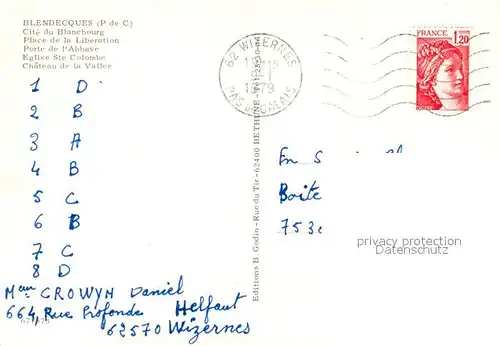 BLENDECQUES (P de C)
Cité du Blancbourg
Place de la Libération
Porte de l'Abbaye
Eglise Ste Colombe
Château de la Vallée
FRANCE
1,20
62 WIZERNES
1979
PAS DE CALAIS
1 D
2 B
3 A
4 B
5 C
6 B
7 C
8 D
En
Boite
753
privacy protection
Datenschutz
Editions B. Godin - Rue du Tir - 62400 BETHUNE
Mme CROWYN Daniel
664, Rue Profonde Helfaut
62570 Wizernes